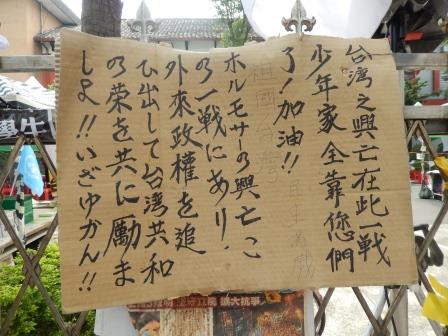 台湾之興亡在此一戰
少年家全靠您們
了!加油!!
ホルモサーの興亡こ
の一戦にあり!
外來政權を追
ひ出して台湾共和
の栄を共に勵ま
しよ!!いざゆかん!!